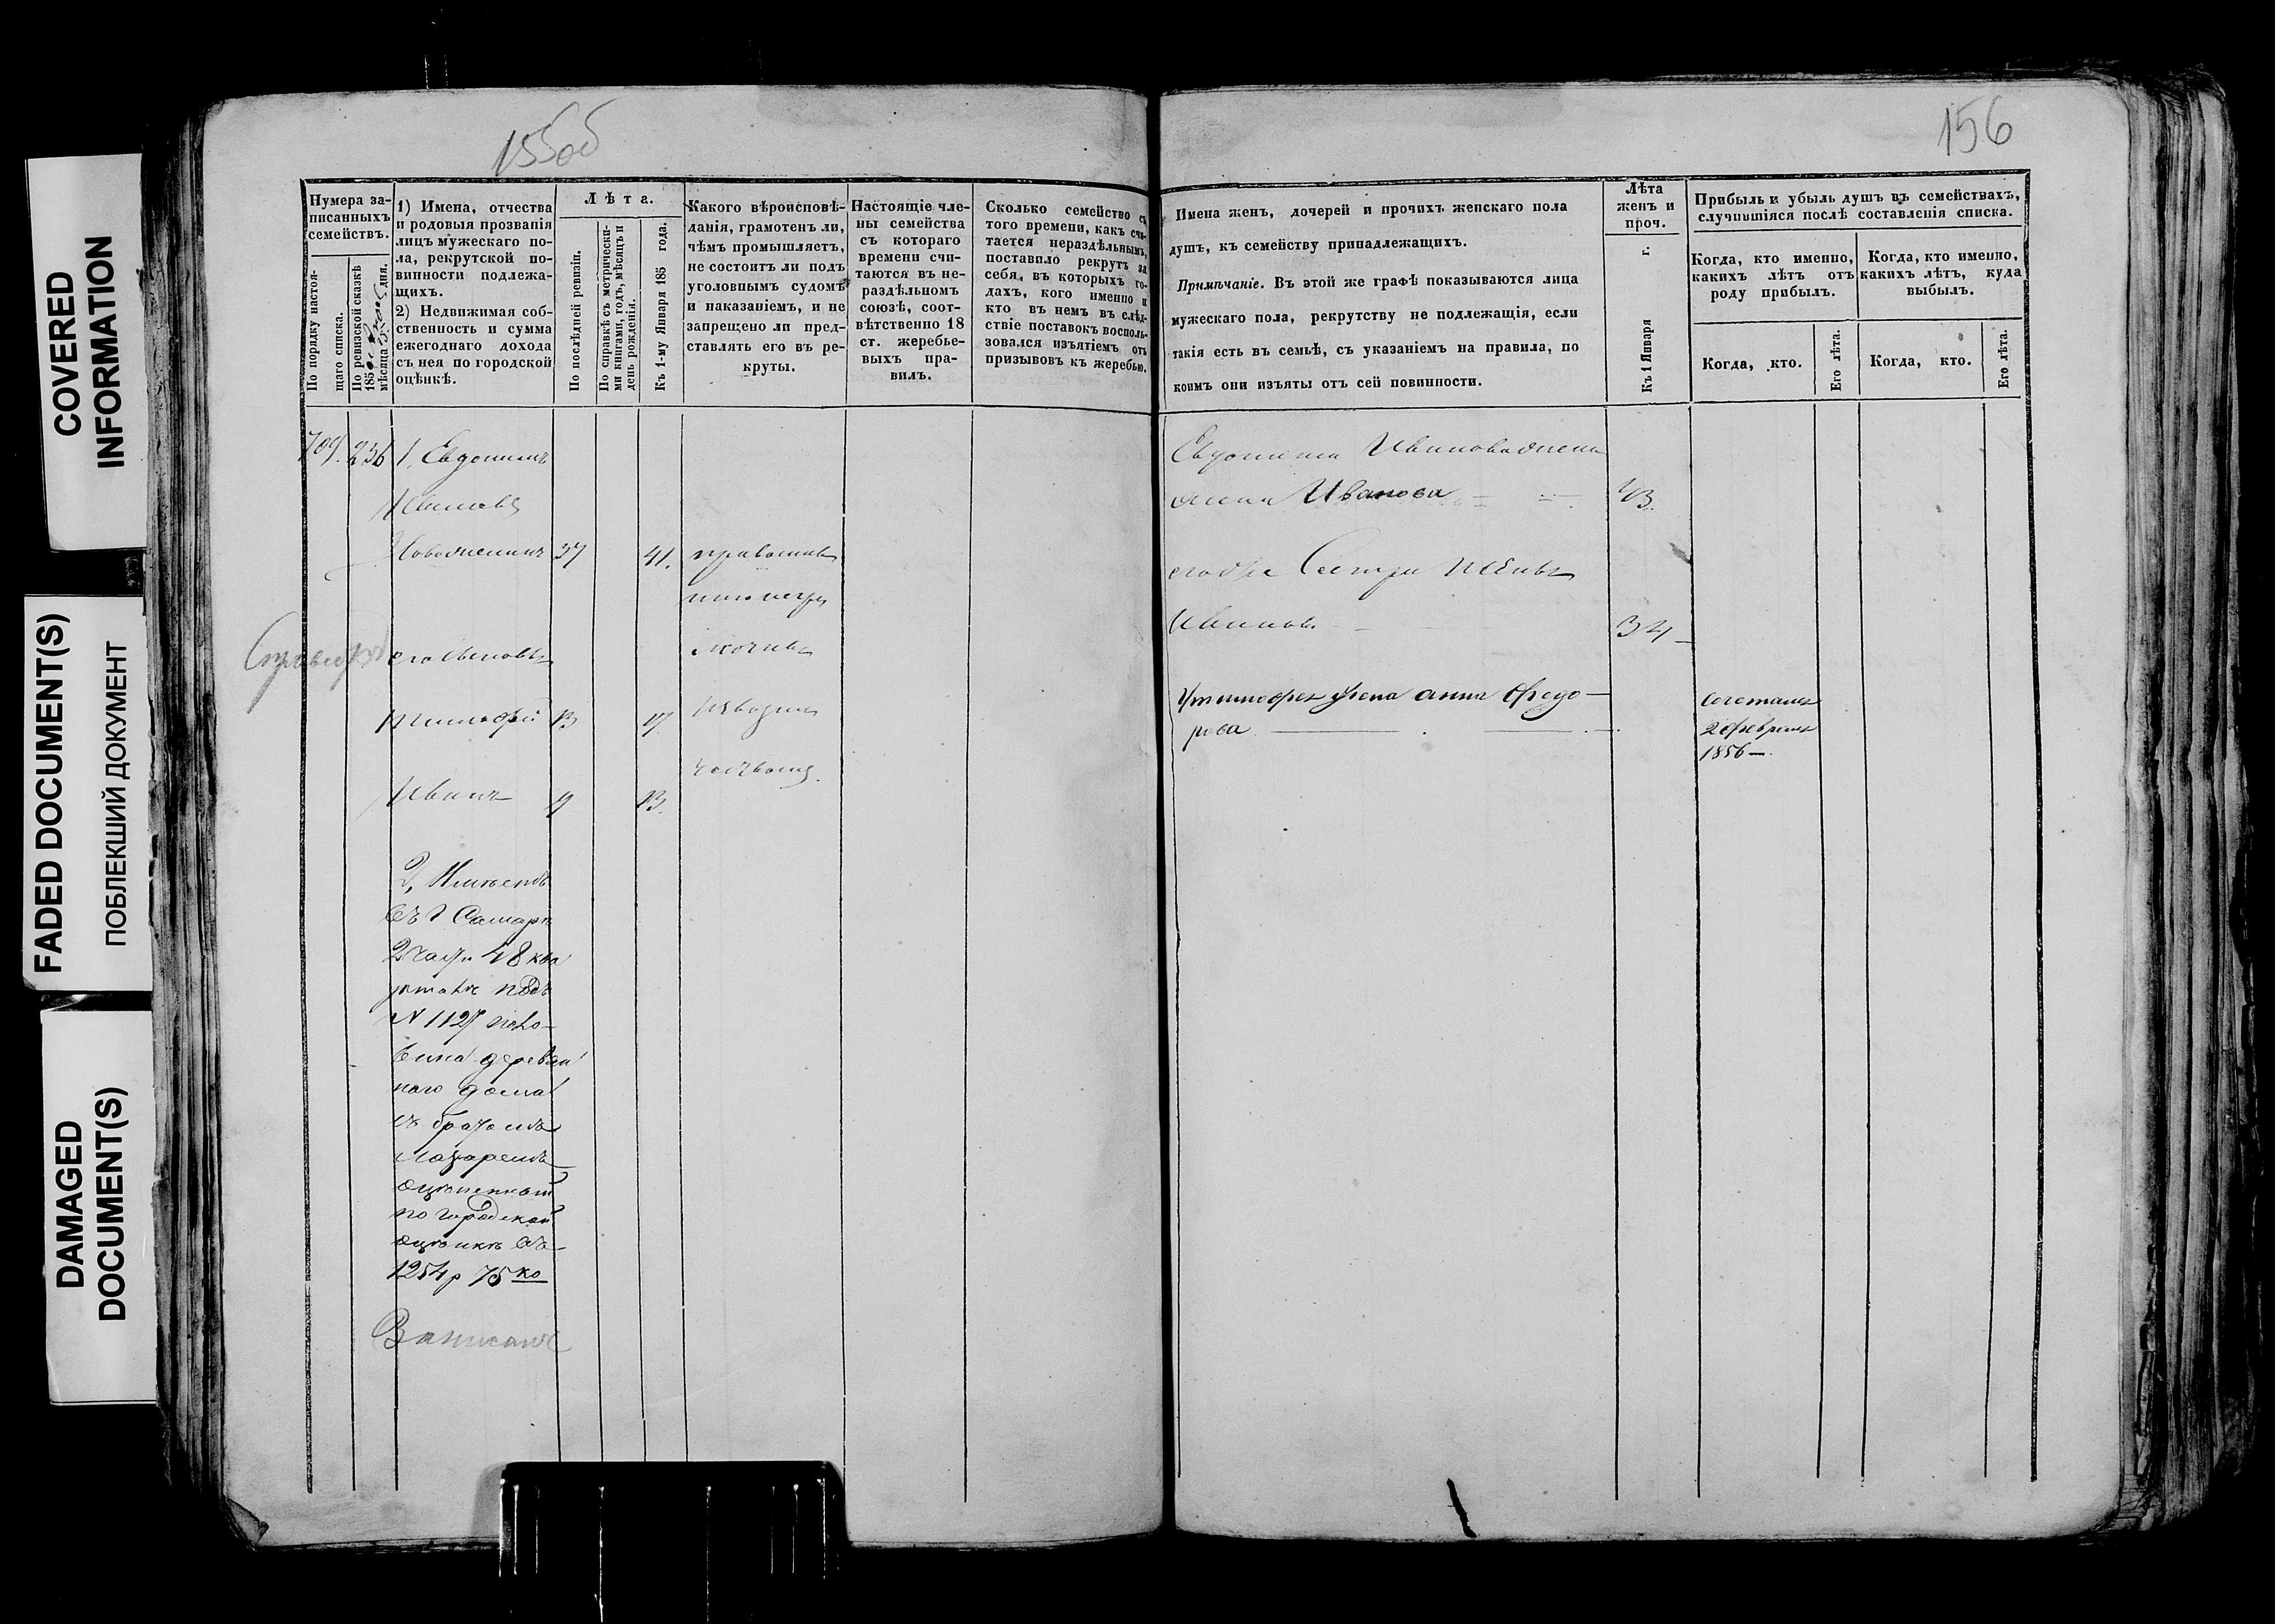 COVERED
INFORMATION
FADED DOCUMENT(S)
ПОБЛЕКШИЙ ДОКУМЕНТ
DAMAGED
DOCUMENT(S)
155об
Нумера за-
писанныхъ
семействъ.
По порядку настоя-
щаго списка.
По ревизской сказкѣ
185
мѣсяца дня.
1) Имена, отчества
и родовыя прозванія
лицъ мужескаго по-
ла, рекрутской по-
винности подлежа-
щихъ.
2) Недвижимая соб-
ственность и сумма
ежегоднаго дохода
съ нея по городской
оцѣнкѣ.
Лѣта.
По послѣдней ревизіи.
По справкѣ съ метрически-
ми книгами, годъ, мѣсяцъ и
день рожденія.
Къ 1-му Января 185 года.
Какого вѣроисповѣ-
данія, грамотенъ ли,
чѣмъ промышляетъ,
не состоитъ ли подъ
уголовнымъ судомъ
и наказаніемъ, и не
запрещено ли пред-
ставлять его въ ре-
круты.
Настоящіе чле-
ны семейства
съ котораго
времени счи-
таются въ не-
раздѣльномъ
союзѣ, соот-
вѣтственно 18
ст. жеребье-
выхъ пра-
вилъ.
Сколько семейство съ
того времени, какъ счи-
тается нераздѣльнымъ,
поставило рекрутъ за
себя, въ которыхъ го-
дахъ, кого именно и
кто въ немъ въ слѣд-
ствіе поставокъ восполь-
зовался изъятіемъ отъ
призывовъ къ жеребью.
709. 236 1, Евдокимъ
Ивановъ
Новоженинъ 37 41. православн
его сыновья
Тимофей 13 17
Иванъ 9 13.
2, Имѣетъ
въ г Самарѣ
2 части 48 ква
рталѣ подъ
N 1127 поло-
вина деревян
наго дома
съ братомъ
Лазаремъ
оцѣненный
по городской
оцѣнкѣ въ
1254р 75 ко
Записанъ
156
Имена женъ, дочерей и прочихъ женскаго пола
душъ, къ семейству принадлежащихъ.
Примѣчаніе. Въ этой же графѣ показываются лица
мужескаго пола, рекрутству не подлежащія, если
такія есть въ семьѣ, съ указаніемъ на правила, по
коимъ они изъяты отъ сей повинности.
Лѣта
женъ и
проч.
Къ 1 Января г.
Прибыль и убыль душъ въ семействахъ,
случившіяся послѣ составленія списка.
Когда, кто именно,
какихъ лѣтъ отъ
роду прибылъ.
Когда, кто именно,
какихъ лѣтъ, куда
выбылъ.
Когда, кто.
Его лѣта.
Когда, кто.
Его лѣта.
Евдокима Иванова жена
анна Иванова 43.
34
Тимофея жена анна Федо-
рова
сочетались
2 февраля
1856